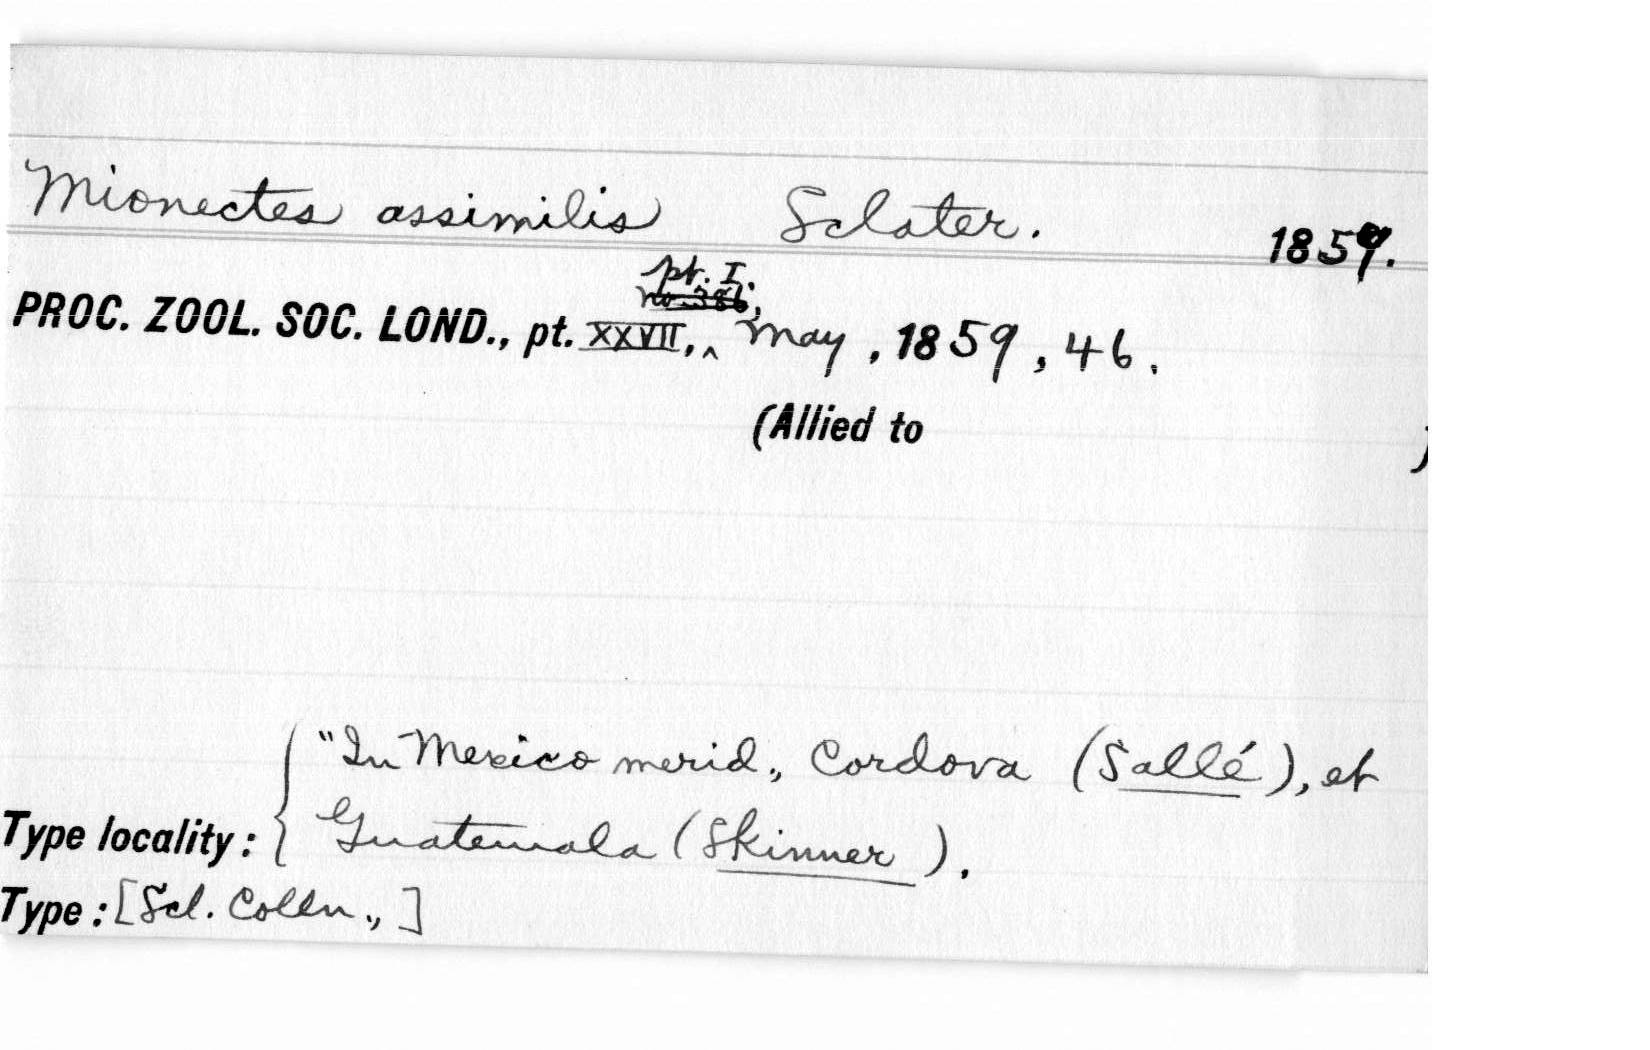 Mionectes assimilis Sclater. 1859.
pt. I.
no. 386,
PROC. ZOOL. SOC. LOND., pt. XXVII, ^ May, 1859, 46.
(Allied to )
"In Mexico merid., Cordova (Sallé), et
Type locality: { Guatemala (Skinner).
Type: [Scl. Colln., ]